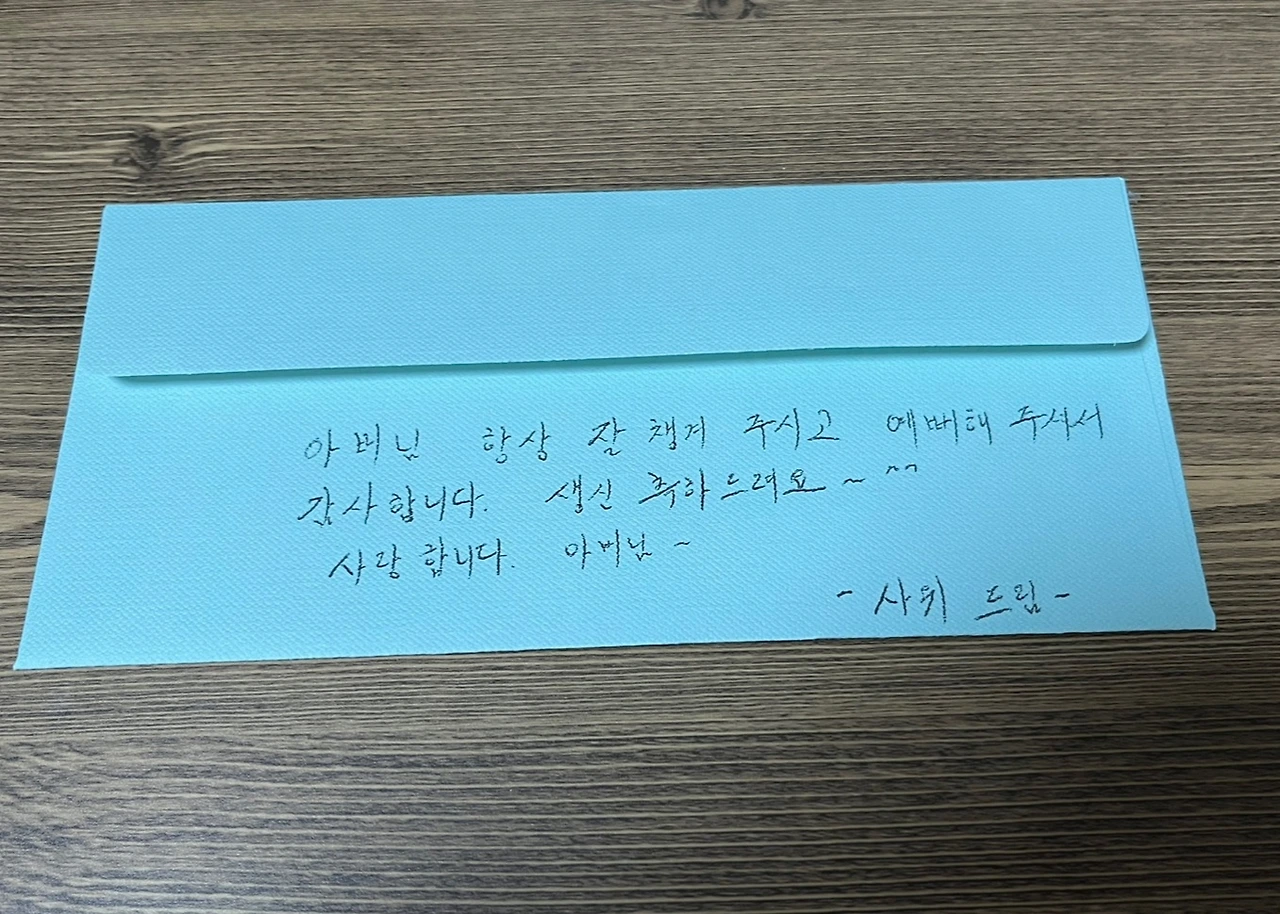 아버님 항상 잘 챙겨 주시고 예뻐해 주셔서
감사합니다. 생신 축하드려요~ ^^
사랑합니다. 아버님~
- 사위 드림 -